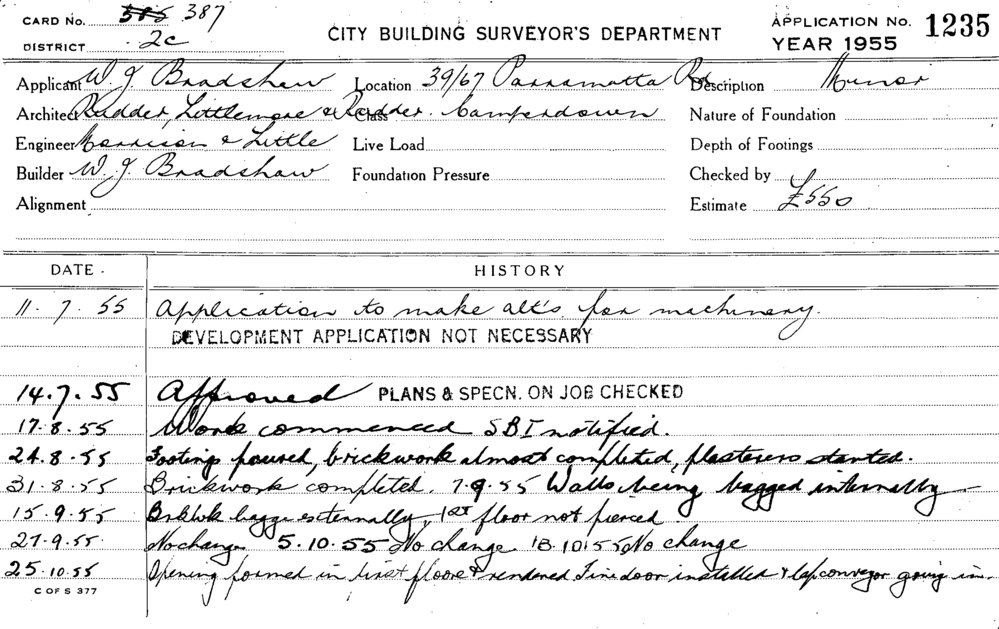 CARD No. 385 387
DISTRICT 2c
CITY BUILDING SURVEYOR'S DEPARTMENT
APPLICATION No. 1235
YEAR 1955
Applicant W. J. Bradshaw Location 39/67 Parramatta Rd Description Minor
Architect Rudder, Littlemore & Rudder Class Camperdown Nature of Foundation
Engineer Morrison & Little Live Load Depth of Footings
Builder W. J. Bradshaw Foundation Pressure Checked by
Alignment Estimate £550
DATE. HISTORY
11.7.55 Application to make alt's. for machinery.
DEVELOPMENT APPLICATION NOT NECESSARY
14.7.55 Approved PLANS & SPECN. ON JOB CHECKED
17.8.55 Work commenced SBI notified.
24.8.55 Footing poured, brickwork almost completed, plasterers started.
31.8.55 Brickwork completed. 7.9.55 Walls being bagged internally
15.9.55 externally, 1st floor not pierced.
27.9.55 No change 5.10.55 No change 18.10.55 No change
25.10.55 Opening formed in first floor & rendered Fire door installed & conveyor going in.
C OF S 377